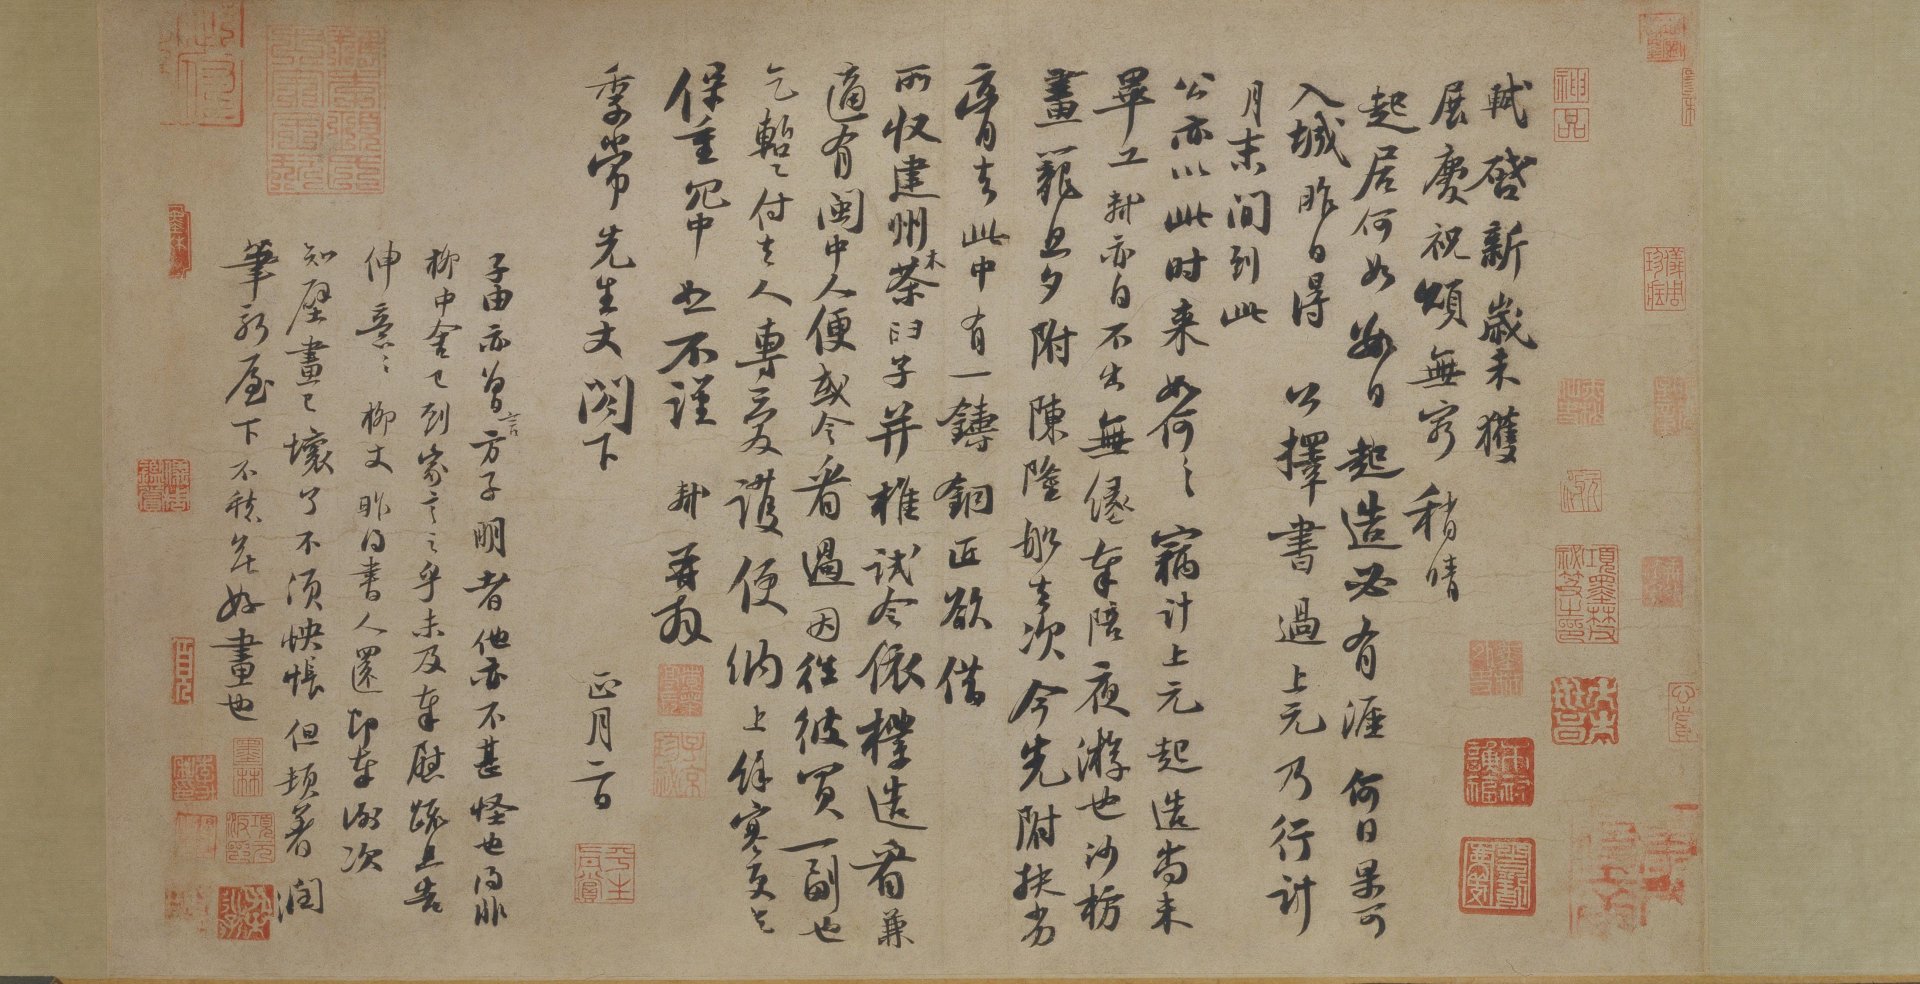 軾啓新歲未獲
展慶祝頌無窮稍晴
起居何如數日起造必有涯何日果可
入城昨日得公擇書過上元乃行計
月末間到此
公亦以此時來如何々竊計上元起造尚未
畢工軾亦自不出無緣奉陪夜游也沙枋
畫籠旦夕附陳隆船去次今先附扶劣
膏去此中有一鑄銅匠欲借
所收建州木茶臼子并椎試令依樣造看兼
適有閩中人便或令看過因往彼買一副也
乞暫付去人專愛護便納上餘寒更乞
保重冗中恕不謹軾再拜
季常先生丈閣下正月二日
子由亦曾言方子明者他亦不甚怪也得非
柳中舍已到家言之乎未及奉慰疏且告
伸意々柳丈昨得書人還即奉謝次
知壁畫已壞了不須怏悵但頓著潤
筆新屋下不愁無好畫也
神品
儀周珍藏
項墨林父祕笈之印
子京珍秘
平生真賞
墨林
項元汴印